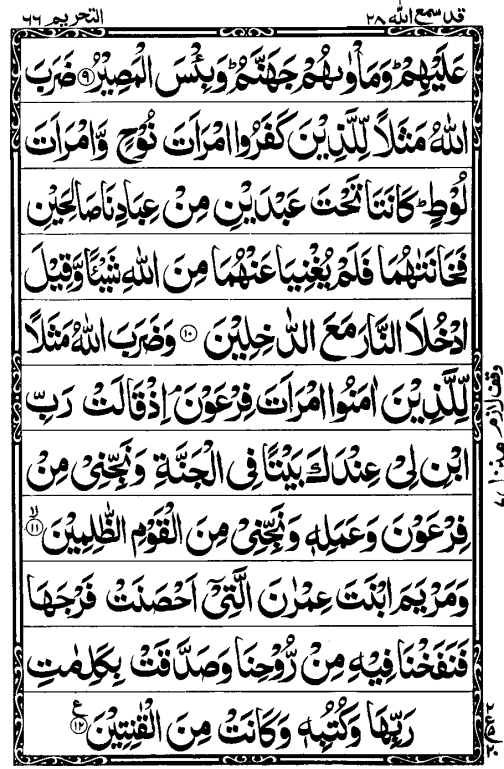 التحريم ٦٦
قد سمع الله ٢٨
عَلَيۡهِمۡ‌ؕ وَمَاۡوٰٮهُمۡ جَهَنَّمُ‌ؕ وَبِئۡسَ الۡمَصِيۡرُ ﴿۹﴾ ضَرَبَ
اللّٰهُ مَثَلًا لِّلَّذِيۡنَ كَفَرُوا امۡرَاَتَ نُوۡحٍ وَّ امۡرَاَتَ
لُوۡطٍ‌ؕ كَانَتَا تَحۡتَ عَبۡدَيۡنِ مِنۡ عِبَادِنَا صَالِحَيۡنِ
فَخَانَتٰهُمَا فَلَمۡ يُغۡنِيَا عَنۡهُمَا مِنَ اللّٰهِ شَيۡــًٔا وَّقِيۡلَ
ادۡخُلَا النَّارَ مَعَ الدّٰخِلِيۡنَ ﴿۱۰﴾ وَضَرَبَ اللّٰهُ مَثَلًا
لِّلَّذِيۡنَ اٰمَنُوا امۡرَاَتَ فِرۡعَوۡنَ‌ۘ اِذۡ قَالَتۡ رَبِّ
ابۡنِ لِىۡ عِنۡدَكَ بَيۡتًا فِى الۡجَنَّةِ وَنَجِّنِىۡ مِنۡ
فِرۡعَوۡنَ وَعَمَلِهٖ وَنَجِّنِىۡ مِنَ الۡقَوۡمِ الظّٰلِمِيۡنَۙ ﴿۱۱﴾
وَمَرۡيَمَ ابۡنَتَ عِمۡرٰنَ الَّتِىۡۤ اَحۡصَنَتۡ فَرۡجَهَا
فَنَفَخۡنَا فِيۡهِ مِنۡ رُّوۡحِنَا وَصَدَّقَتۡ بِكَلِمٰتِ
رَبِّهَا وَكُتُبِهٖ وَكَانَتۡ مِنَ الۡقٰنِتِيۡنَ ﴿۱۲﴾ ع
وقف لازم